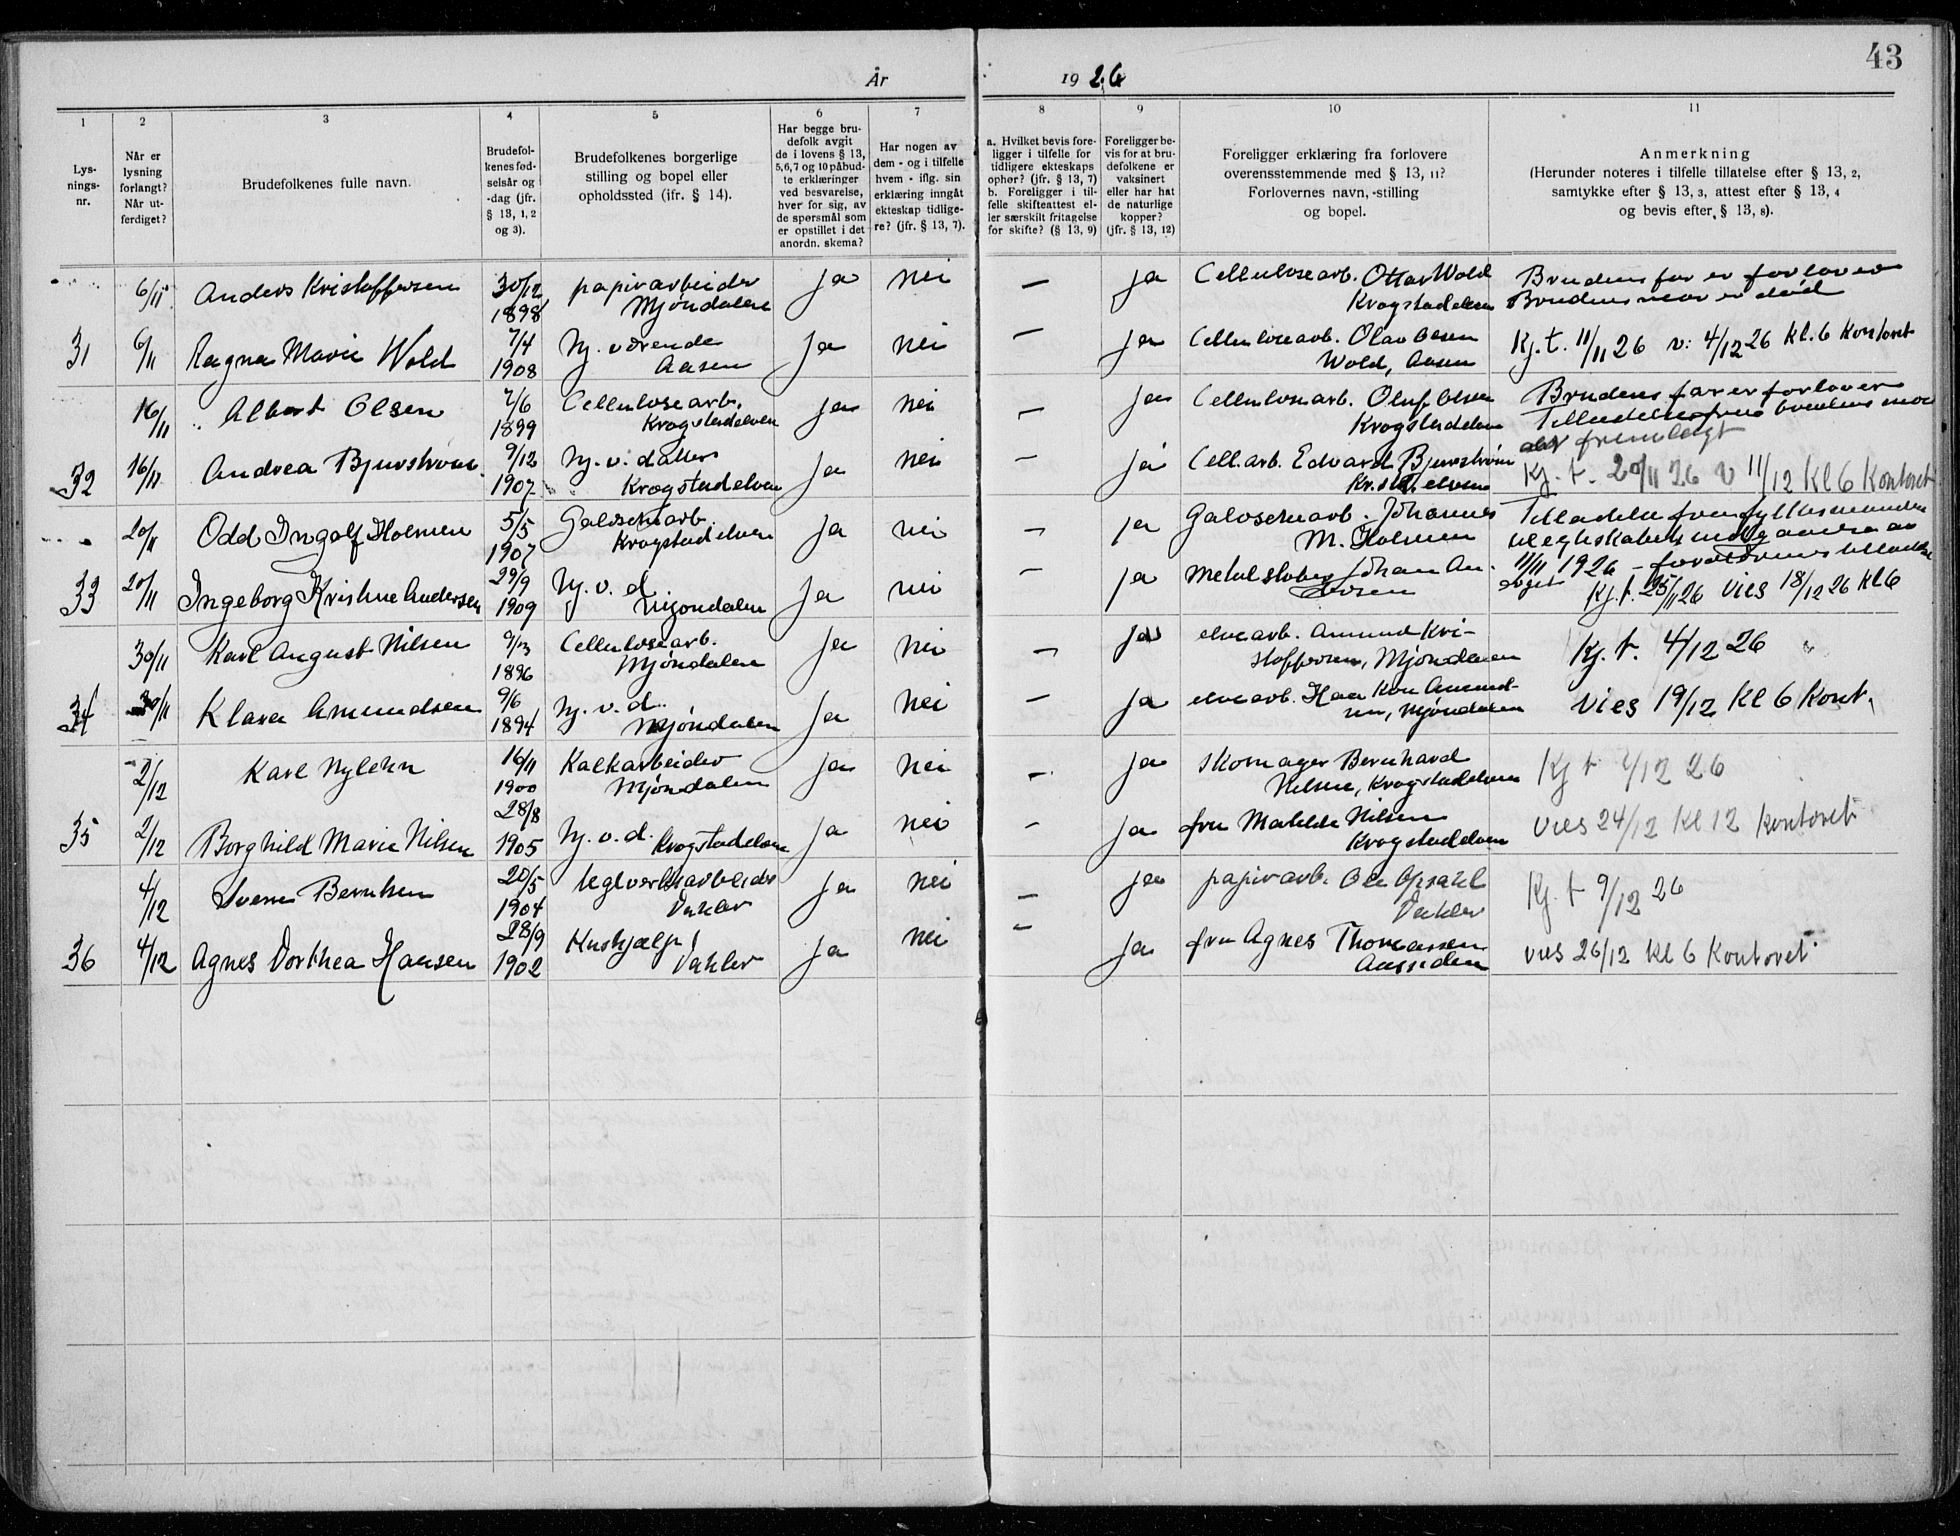 43
År 1926
1 2 3 4 5 6 7 8 9 10 11
Lys-
nings-
nr.
Når er
lysning
forlangt?
Når ut-
ferdiget?
Brudefolkenes fulle navn.
Brudefol-
kenes fød-
selsår og
-dag (jfr.
§ 13, 1, 2
og 3).
Brudefolkenes borgerlige
stilling og bopel eller
opholdssted (jfr. § 14).
Har begge bru-
defolk avgit
de i lovens § 13,
5,6,7 og 10 påbud-
te erklæringer
ved besvarelse,
hver for sig, av
de spørsmål som
er opstillet i det
anordn. skema?
Har nogen av
dem - og i tilfelle
hvem - iflg. sin
erklæring inngåt
ekteskap tidlige-
re? (jfr. § 13, 7).
a. Hvilket bevis fore-
ligger i tilfelle for
tidligere ekteskaps
ophør? (jfr. § 13, 7)
b. Foreligger i til-
felle skifteattest el-
ler særskilt fritagelse
for skifte? (§ 13, 9)
Foreligger be-
vis for at bru-
defolkene er
vaksinert
eller har hat
de naturlige
kopper?
(jfr. § 13, 12)
Foreligger erklæring fra forlovere
overensstemmende med § 13, 11?
Forlovernes navn, -stilling
og bopel.
Anmerkning
(Herunder noteres i tilfelle tillatelse efter § 13, 2,
samtykke efter § 13, 3, attest efter § 13, 4
og bevis efter § 13, 8).
6/11 Anders Kristoffersen 30/12 1898 papirarbeider Mjøndalen ja nei — ja Cellulosearb. Ottar Wold Krogstadelven Brudens far er forlover Brudens mor er død
31 6/11 Ragna Marie Wold 7/4 1908 hj. værende Aasen ja nei — ja Cellulosearb. Olav Olsen Wold, Aasen Kj. t. 11/11 26 v: 4/12 26 kl. 6 kontoret
16/11 Albert Olsen 7/6 1899 Cellulosearb. Krogstadelven ja nei — ja Cellulosearb. Oluf Olsen Krogstadelven Brudens far er forlover Tilladelse fra brudens mor fremlagt
32 16/11 Andrea Bjurstrøm 9/12 1907 hj. v. datter Krogstadelven ja nei — ja Cell.arb. Edvard Bjurstrøm Kr.st.elven Kj. t. 20/11 26 v 11/12 kl 6 Kontoret
20/11 Odd Ingolf Holmen 5/5 1907 Galoschearb Krogstadelven ja nei — ja Galoschearb. Johannes M. Holmen Tilladelse fra fylkesmanden til egteskabets indgaaelse av 11/11 1926 —
33 20/11 Ingeborg Kristine Andersen 29/9 1909 hj. v. d Mjøndalen ja nei — ja Metalstøber Johan Andersen Kj. t. 25/11 26 vies 18/12 26 kl 6
30/11 Karl August Nilsen 9/3 1896 Cellulosearb. Mjøndalen ja nei — ja elvearb. Amund Kri-stoffersen, Mjøndalen Kj. t. 4/12 26
34 30/11 Klara Amundsen 9/6 1894 hj. v. d. Mjøndalen ja nei — ja elvearb. Haakon Amund-sen, Mjøndalen Vies 19/12 kl 6 Kont.
2/12 Karl Nylehn 16/11 1900 Kalkarbeider Mjøndalen ja nei — ja Skomager Bernhard Nilsen, Krogstadelven Kj t 9/12 26
35 2/12 Borghild Marie Nilsen 28/8 1905 hj. v. d. Krogstadelven ja nei — ja fru Matilde Nilsen Krogstadelven vies 24/12 kl 12 kontoret
4/12 Sverre Berntsen 20/5 1904 teglverksarbeider Daler ja nei — ja papirarb. Ole Opsahl Kj. t 9/12 26
36 4/12 Agnes Dorthea Hansen 28/9 1902 Hushjælp ja nei — ja fru Agnes Thomassen Aassiden vies 26/12 kl 6 Kontoret